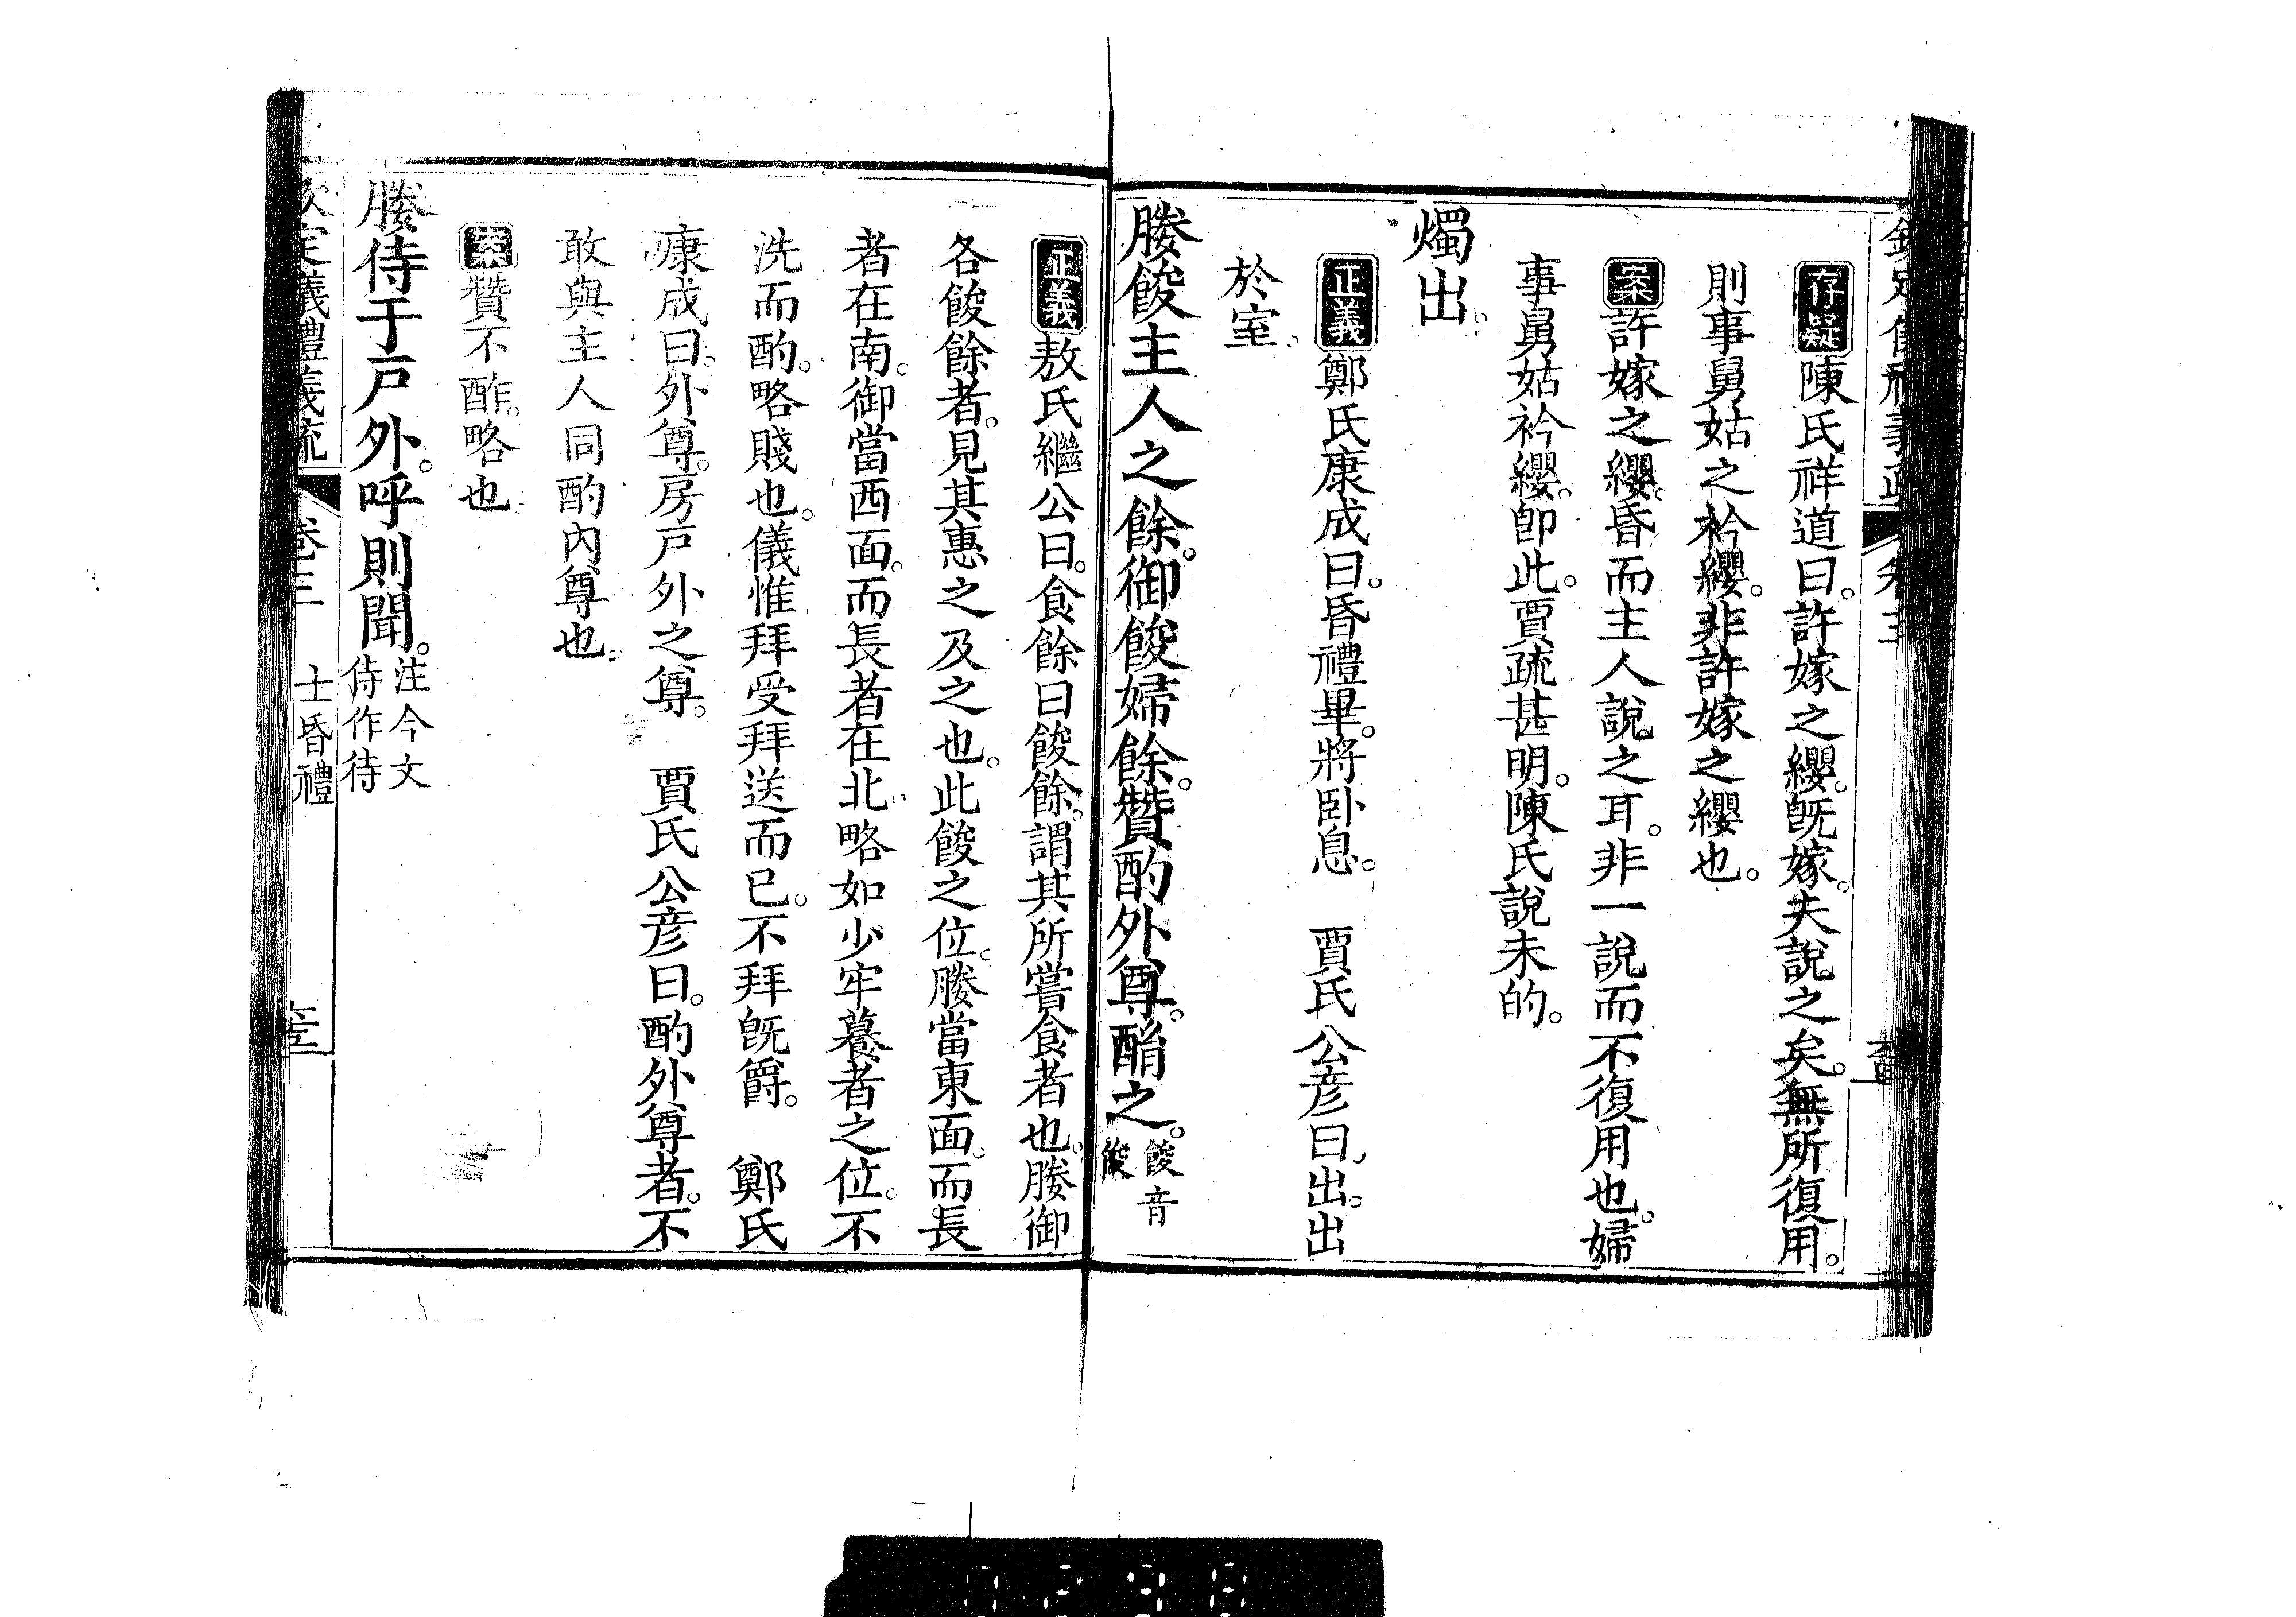 欽定儀禮義疏 卷三
存疑陳氏祥道曰。許嫁之纓。旣嫁。夫說之矣。無所復用。
則事舅姑之衿纓。非許嫁之纓也。
案許嫁之纓。昏而主人說之耳。非一說而不復用也。婦
事舅姑衿纓。卽此。賈疏甚明。陳氏說未的。
燭出。
正義鄭氏康成曰。昏禮畢。將臥息。 賈氏公彦曰。出。出
於室。
媵餕主人之餘。御餕婦餘。贊酌外尊。酳之。
餕音
餕
正義敖氏繼公曰。食餘曰餕。餘。謂其所嘗食者也。媵御
各餕餘者。見其惠之及之也。此餕之位。媵當東面。而長
者在南。御當西面。而長者在北。略如少牢䭕者之位。不
洗而酌。略賤也。儀惟拜受拜送而已。不拜旣爵。 鄭氏
康成曰。外尊。房戸外之尊。 賈氏公彦曰。酌外尊者。不
敢與主人同酌內尊也。
案贊不酢。略也
媵侍于戸外。呼則聞。
注今文
侍作待
欽定儀禮義疏 卷三 士昏禮